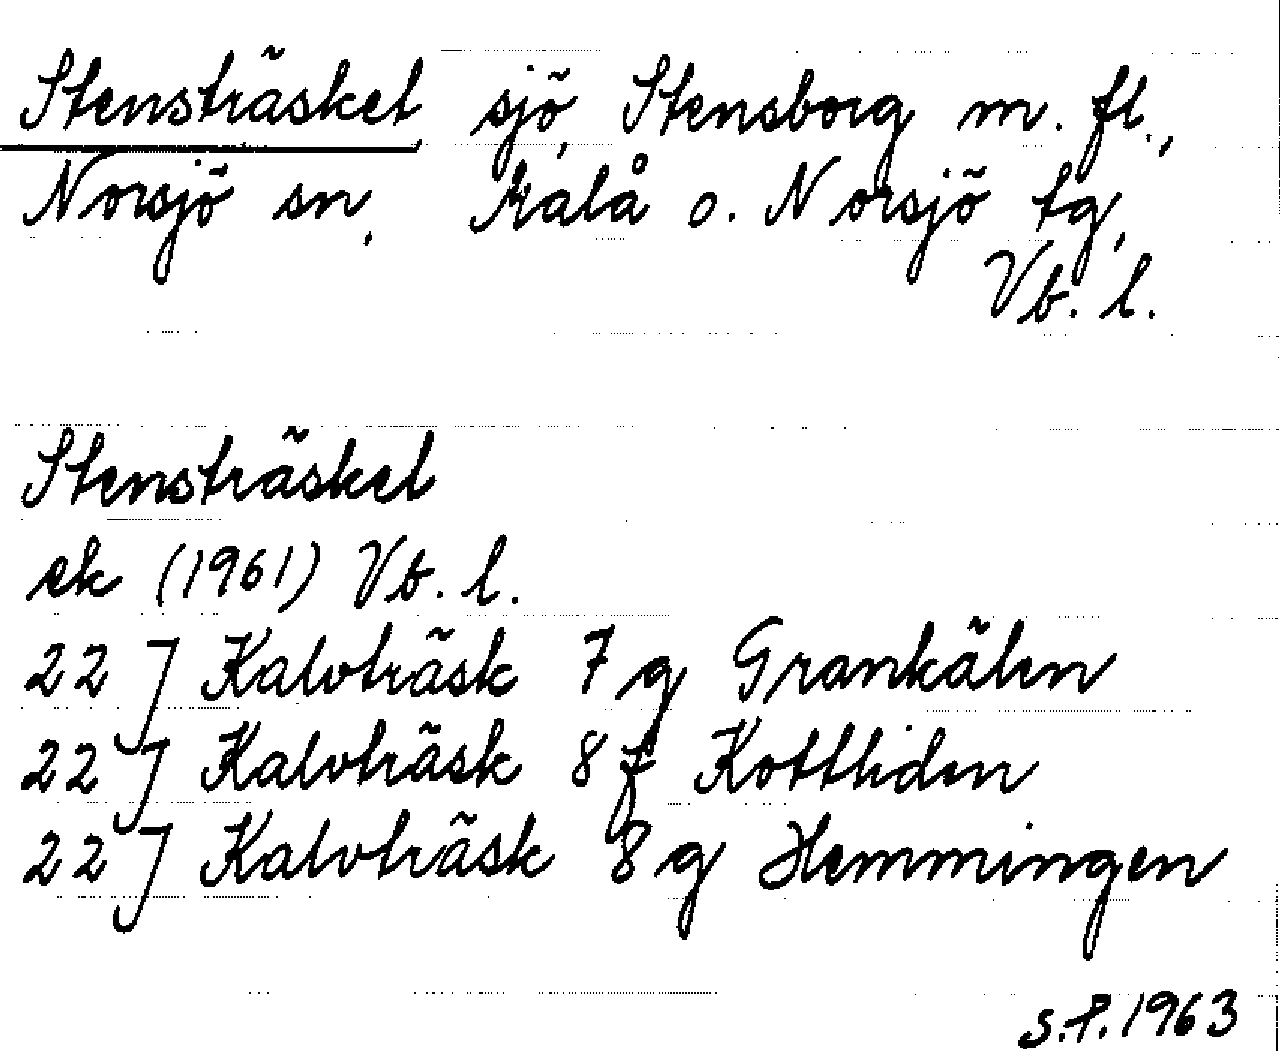 Stensträsket sjö, Stensborg m. fl.,
Norsjö sn, Malå o. Norsjö tg,
Vb. l.
Stensträsket
ek (1961) Vb. l.
22 J Kalvträsk 7 g Grankälen
22 J Kalvträsk 8 f Kottliden
22 J Kalvträsk 8 g Hemmingen
S.P. 1963